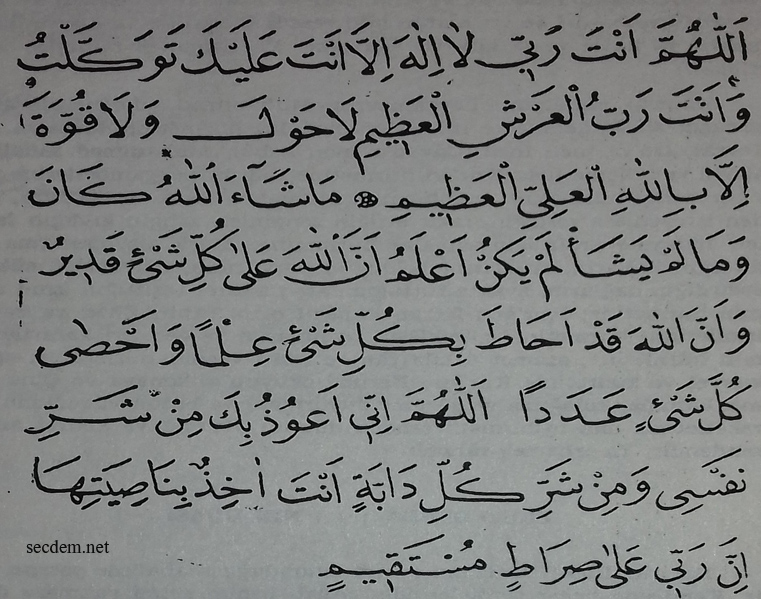 اَللّٰهُمَّ اَنْتَ رَبِّي لَا اِلٰهَ اِلَّا اَنْتَ عَلَيْكَ تَوَكَّلْتُ
وَاَنْتَ رَبُّ الْعَرْشِ الْعَظِيمِ لَا حَوْلَ وَلَا قُوَّةَ
اِلَّا بِاللّٰهِ الْعَلِيِّ الْعَظِيمِ مَا شَاۤءَ اللّٰهُ كَانَ
وَمَا لَمْ يَشَأْ لَمْ يَكُنْ اَعْلَمُ اَنَّ اللّٰهَ عَلٰى كُلِّ شَيْئٍ قَدِيرٌ
وَاَنَّ اللّٰهَ قَدْ اَحَاطَ بِكُلِّ شَيْئٍ عِلْمًا وَاَحْصٰى
كُلَّ شَيْئٍ عَدَدًا اَللّٰهُمَّ اِنِّي اَعُوذُ بِكَ مِنْ شَرِّ
نَفْسِى وَمِنْ شَرِّ كُلِّ دَابَّةٍ اَنْتَ اٰخِذٌ بِنَاصِيَتِهَا
اِنَّ رَبِّي عَلٰى صِرَاطٍ مُسْتَقِيمٍ
secdem.net